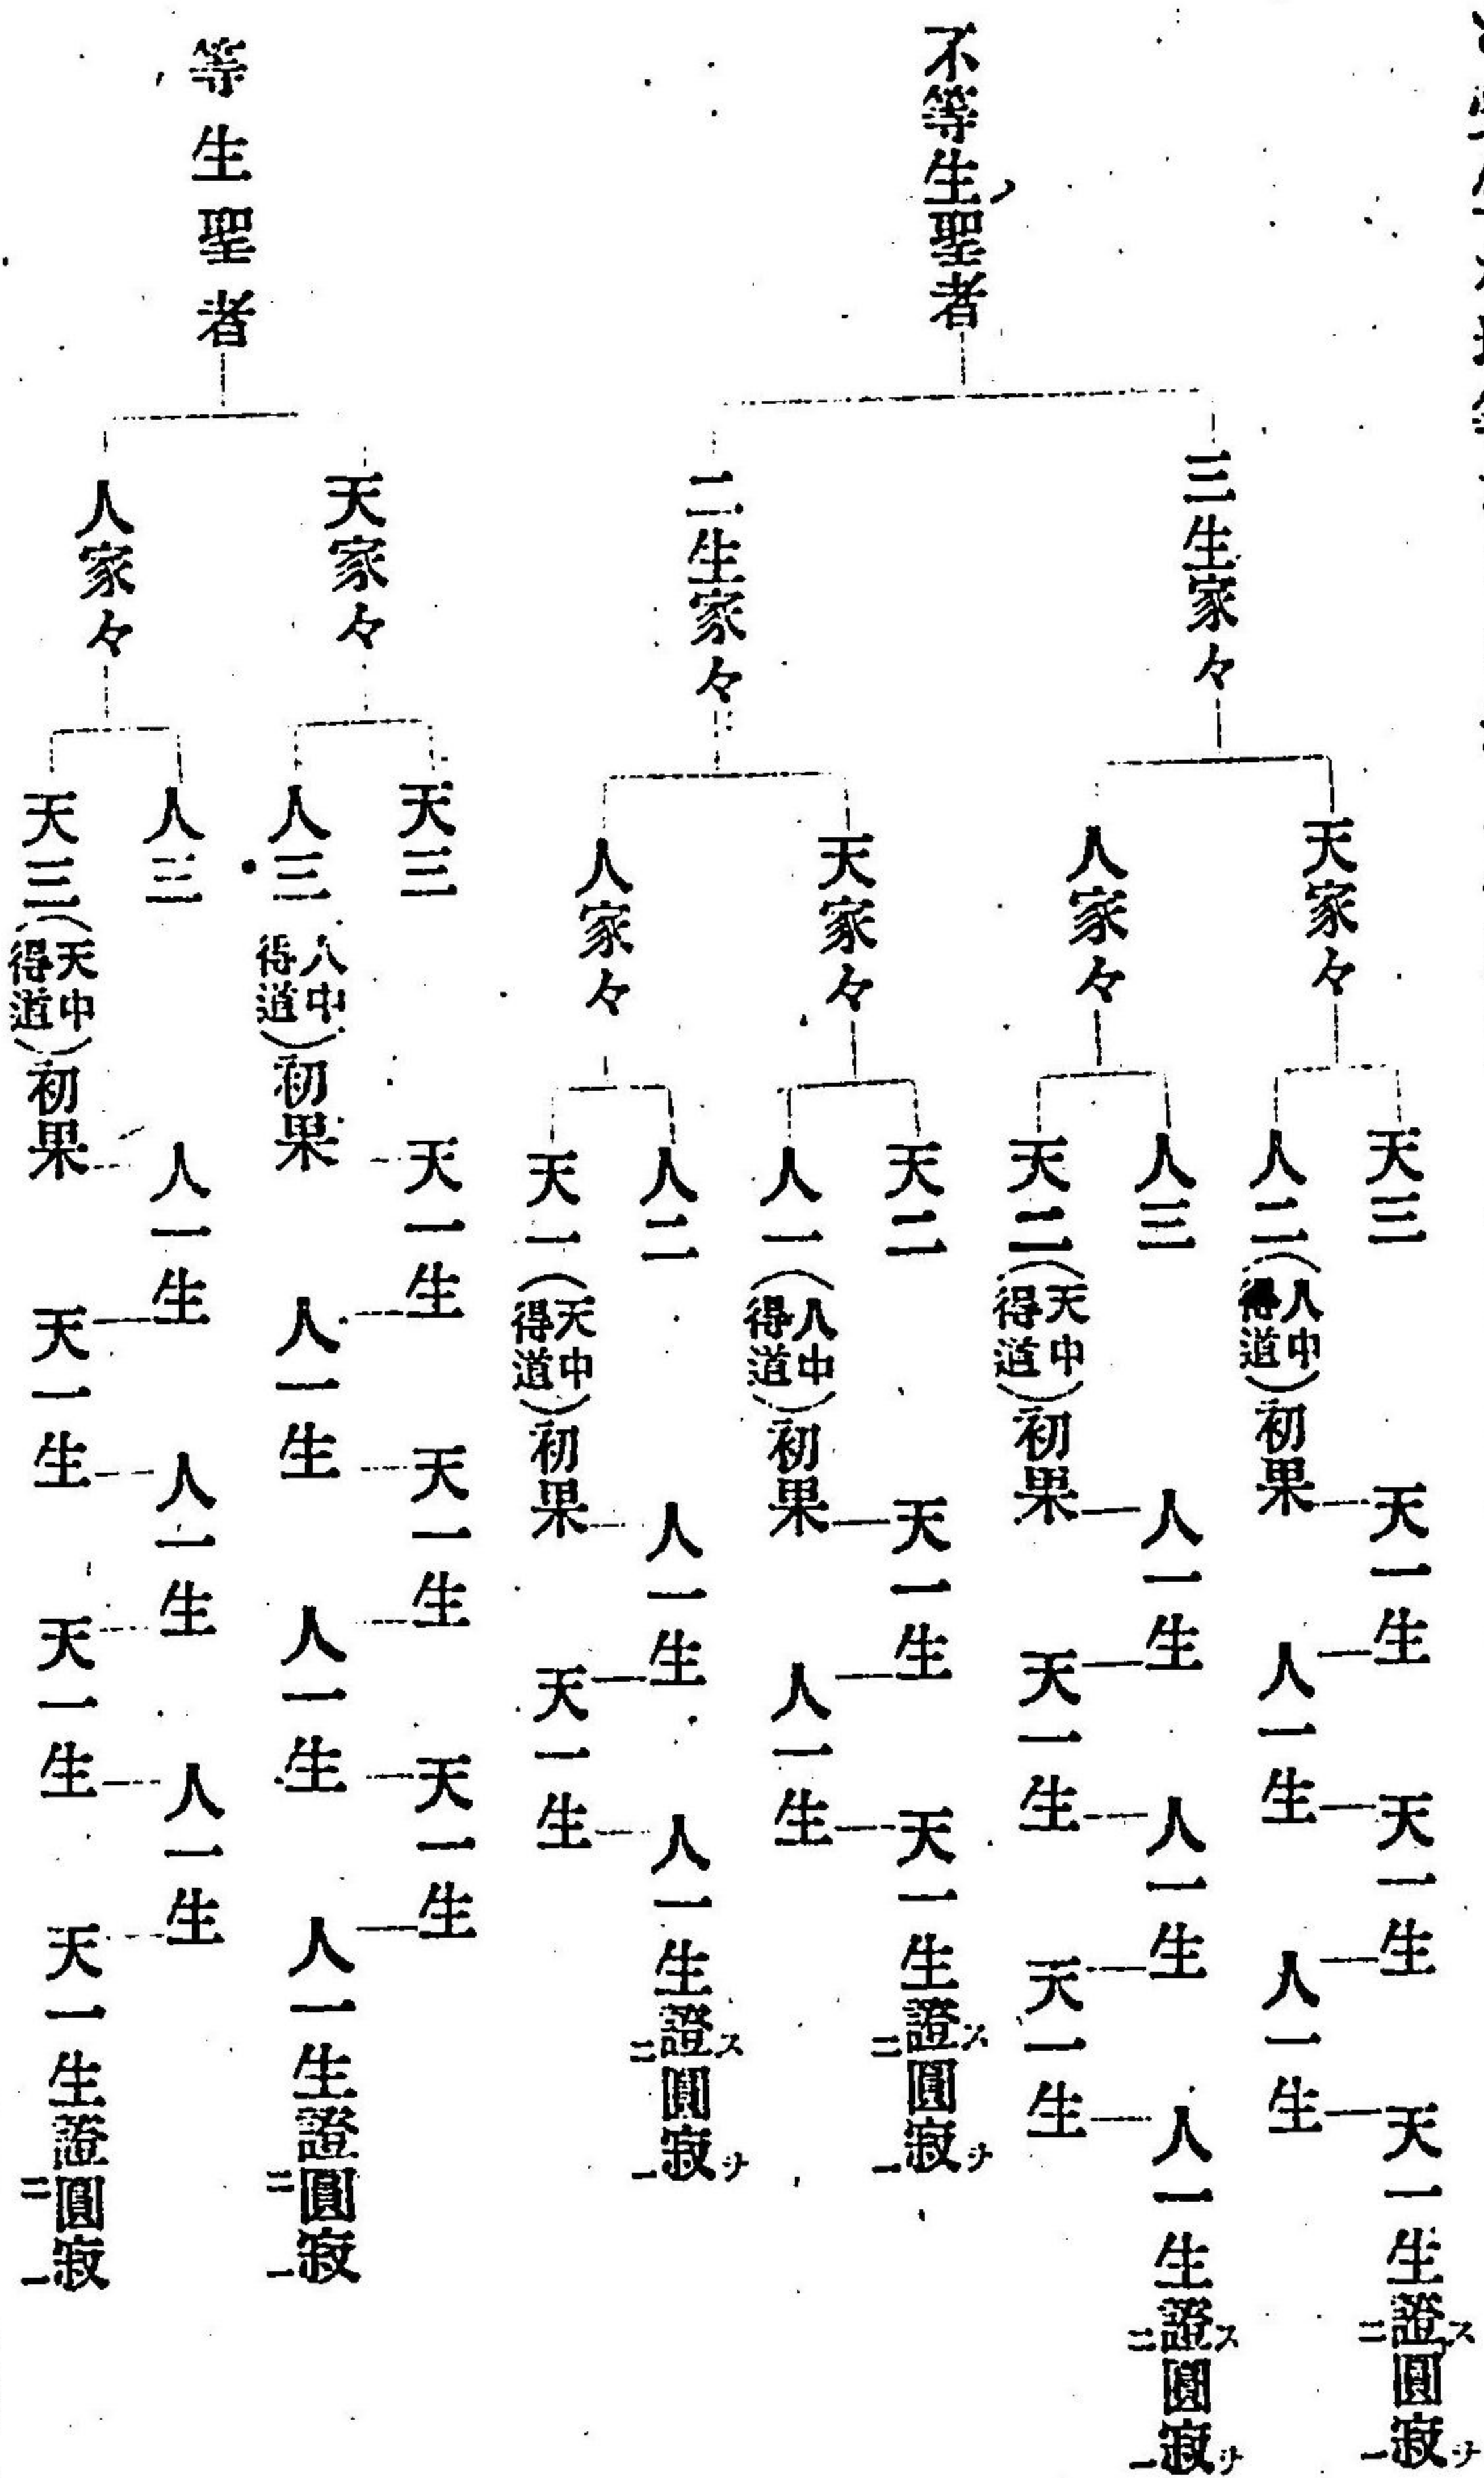 不等生聖者
三生家々
天家々
天三
人二（人中得道）初果
天一生
人一生
天一生
人一生
天一生證二圓寂一
ス
ヲ
人家々
人三
天二（天中得道）初果
人一生
天一生
人一生
天一生
人一生證二圓寂一
ス
ヲ
二生家々
天家々
天二
人一（人中得道）初果
天一生
人一生
天一生證二圓寂一
ス
ヲ
人家々
人二
天一（天中得道）初果
人一生
天一生
人一生證二圓寂一
ス
ヲ
等生聖者
天家々
天三
人三（人中得道）初果
天一生
人一生
天一生
人一生
天一生
人一生證二圓寂一
人家々
人三
天三（天中得道）初果
人一生
天一生
人一生
天一生
人一生
天一生證二圓寂一